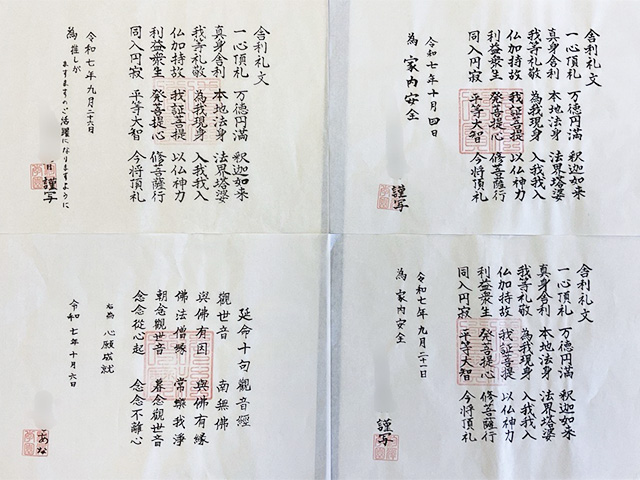 舎利礼文
一心頂礼 万徳円満 釈迦如来
真身舎利 本地法身 法界塔婆
我等礼敬 為我現身 入我我入
仏加持故 我証菩提 以仏神力
利益衆生 発菩提心 修菩薩行
同入円寂 平等大智 今将頂礼
令和七年九月二十六日
為 推しが
ますますのご活躍になりますように
謹写
舎利礼文
一心頂礼 万徳円満 釈迦如来
真身舎利 本地法身 法界塔婆
我等礼敬 為我現身 入我我入
仏加持故 我証菩提 以仏神力
利益衆生 発菩提心 修菩薩行
同入円寂 平等大智 今将頂礼
令和七年十月四日
為 家内安全
謹写
延命十句觀音經
觀世音 南無佛
與佛有因 與佛有緣
佛法僧緣 常樂我淨
朝念觀世音 暮念觀世音
念念從心起 念念不離心
右為 心願成就
令和七年十月六日
あな
舎利礼文
一心頂礼 万徳円満 釈迦如来
真身舎利 本地法身 法界塔婆
我等礼敬 為我現身 入我我入
仏加持故 我証菩提 以仏神力
利益衆生 発菩提心 修菩薩行
同入円寂 平等大智 今将頂礼
令和七年九月二十一日
為 家内安全
謹写